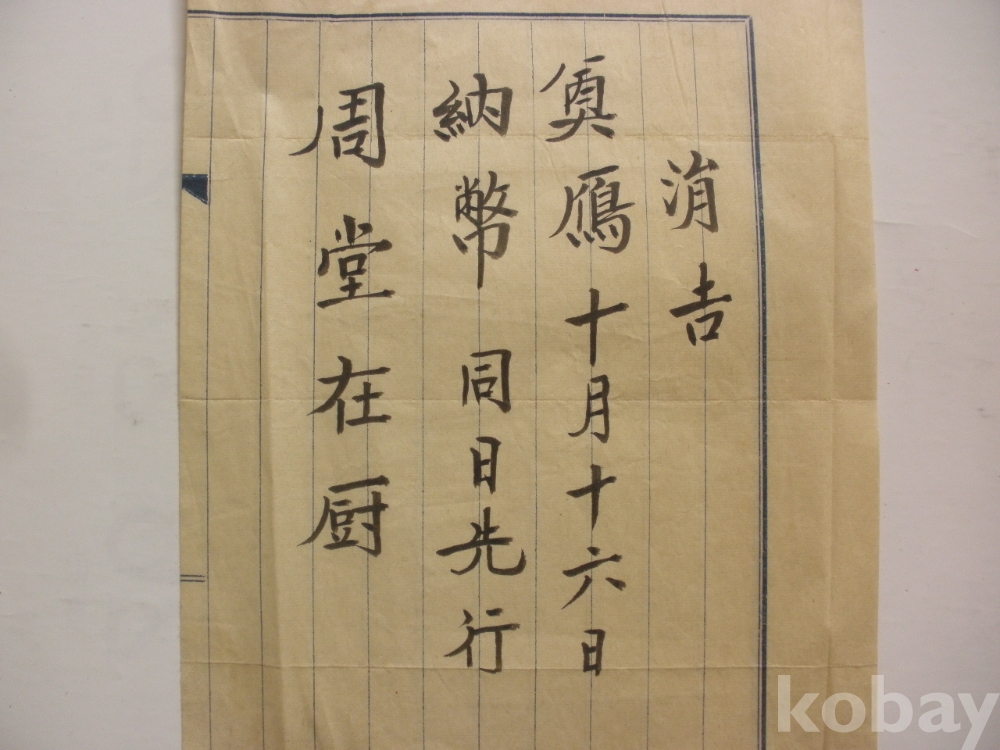 涓吉
奠鴈十月十六日
納幣同日先行
周堂在厨
kobay